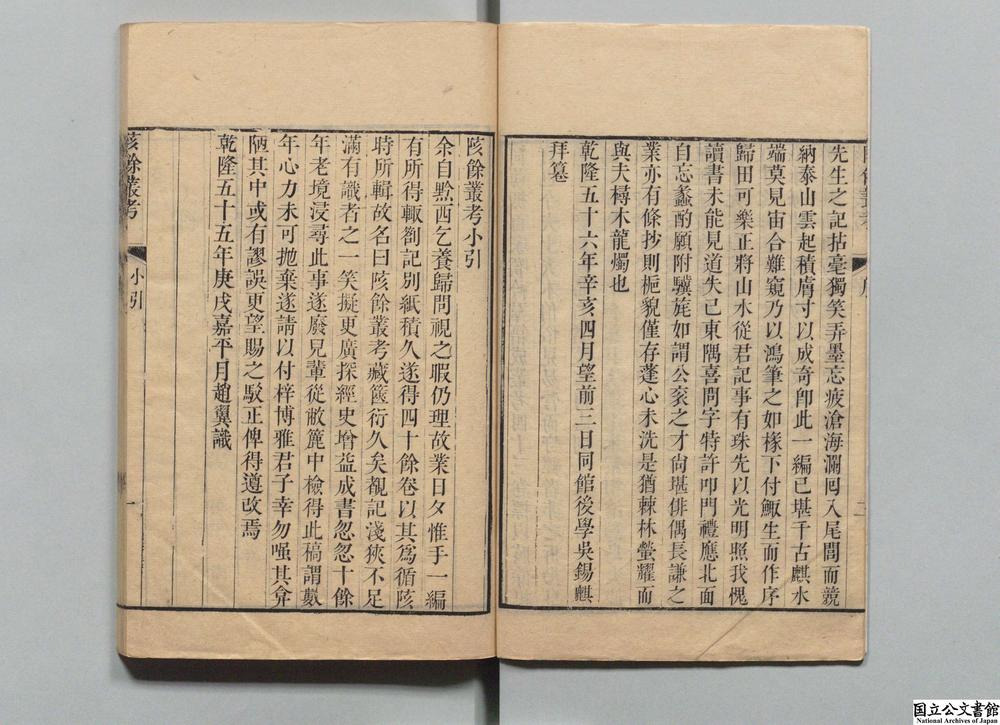 先生之記拈毫獨笑弄墨忘疲滄海瀾囘入尾閭而競
納泰山雲起積膚寸以成奇卽此一編已堪千古麒水
端莫見宙合難窺乃以鴻筆之如椽下付鯫生而作序
歸田可樂正將山水從君記事有珠先以光明照我愧
讀書未能見道失已東隅喜問字特許叩門禮應北面
自忘蠡酌願附驥旄如謂公衮之才尙堪俳偶長謙之
業亦有條抄則梔貌僅存蓬心未洗是猶棘林螢耀而
與夫樳木龍燭也
乾隆五十六年辛亥四月望前三日同館後學吳錫麒
拜篹
陔餘叢考小引
余自黔西乞養歸問視之暇仍理故業日夕惟手一編
有所得輒劄記別紙積久遂得四十餘卷以其爲循陔
時所輯故名曰陔餘叢考藏篋衍久矣覩記淺狹不足
滿有識者之一笑擬更廣探經史增益成書忽忽十餘
年老境浸尋此事遂廢兒輩從敝簏中檢得此稿謂數
年心力未可抛棄遂請以付梓博雅君子幸勿嗤其弇
陋其中或有謬誤更望賜之駁正俾得遵改焉
乾隆五十五年庚戌嘉平月趙翼識
陔餘叢考
小引
一
国立公文書館
National Archives of Japan